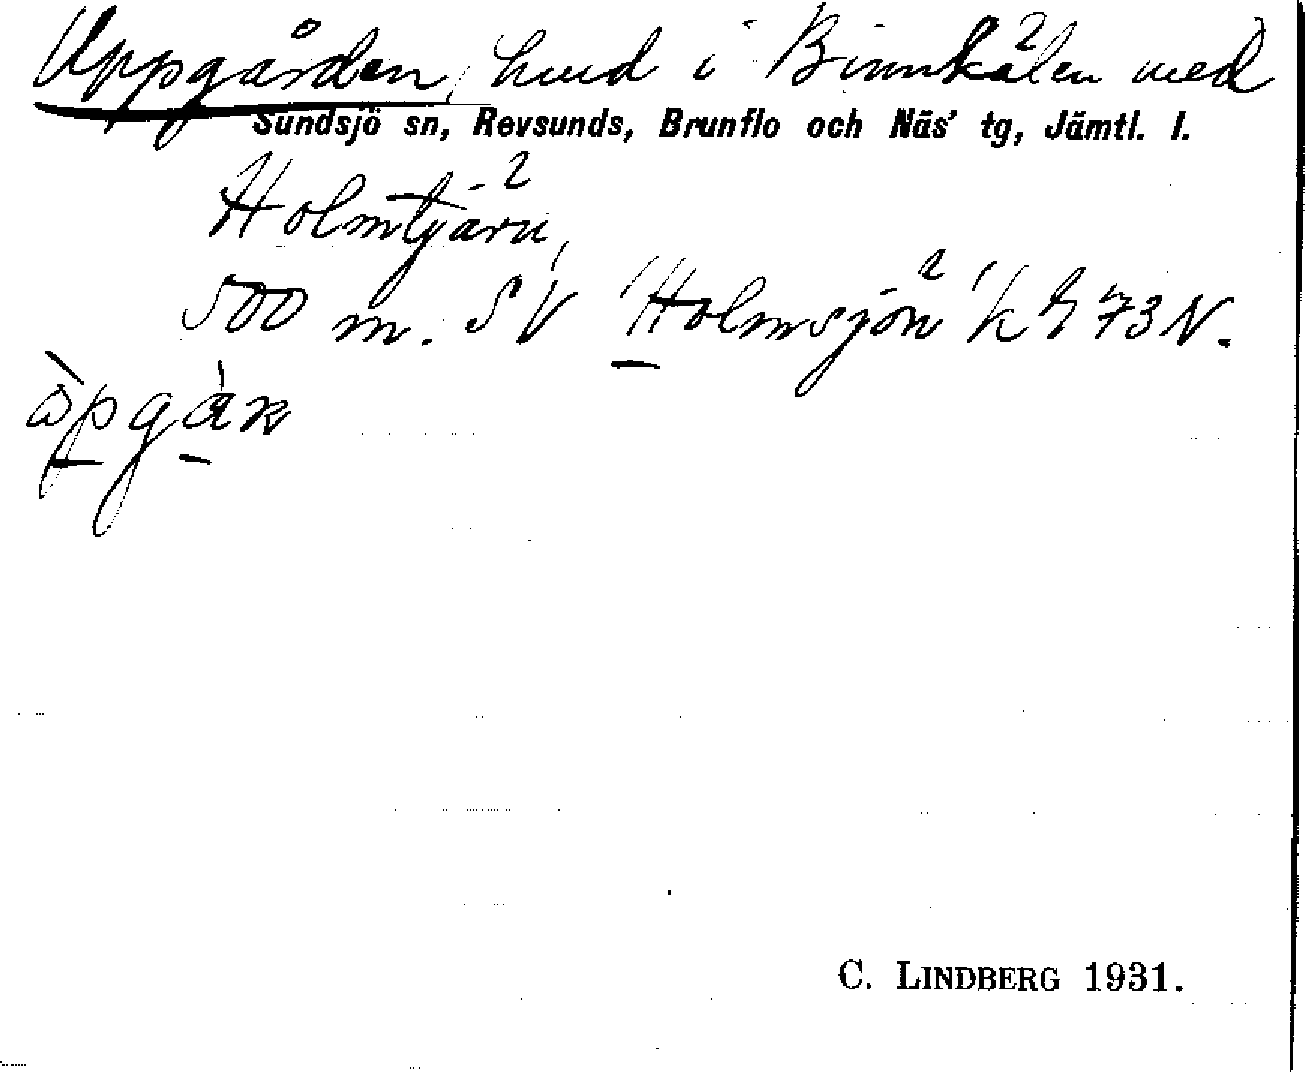 Uppgården, hmd i Binnkålen med
Sundsjö sn, Revsunds, Brunflo och Näs' tg, Jämtl. l.
Holmtjärn,
500 m. SV Holmsjön k 73 N.
C. LINDBERG 1931.